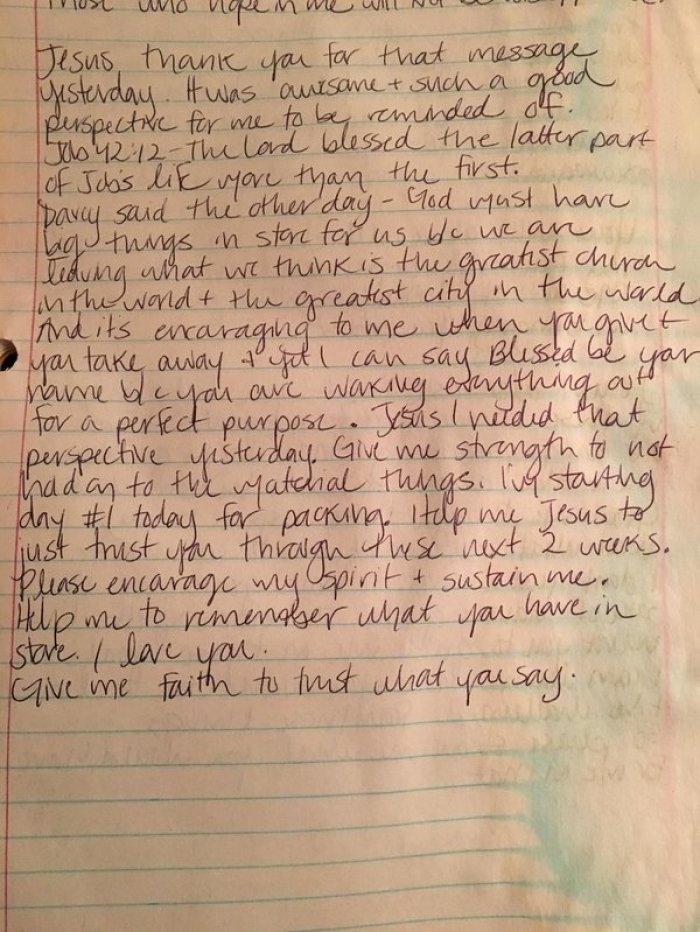 those who hope in me will not be
Jesus thank you for that message
yesterday. It was awesome + such a good
perspective for me to be reminded of.
Job 42:12 - The Lord blessed the latter part
of Job's life more than the first.
Darcy said the other day - God must have
big things in store for us b/c we are
leaving what we think is the greatest church
in the world + the greatest city in the world
And it's encouraging to me when you give +
you take away + yet I can say Blessed be your
name b/c you are working everything out
for a perfect purpose. Jesus I needed that
perspective yesterday. Give me strength to not
hold on to the material things. I'm starting
day #1 today for packing. Help me Jesus to
just trust you through these next 2 weeks.
Please encourage my spirit + sustain me.
Help me to remember what you have in
store. I love you.
Give me faith to trust what you say.